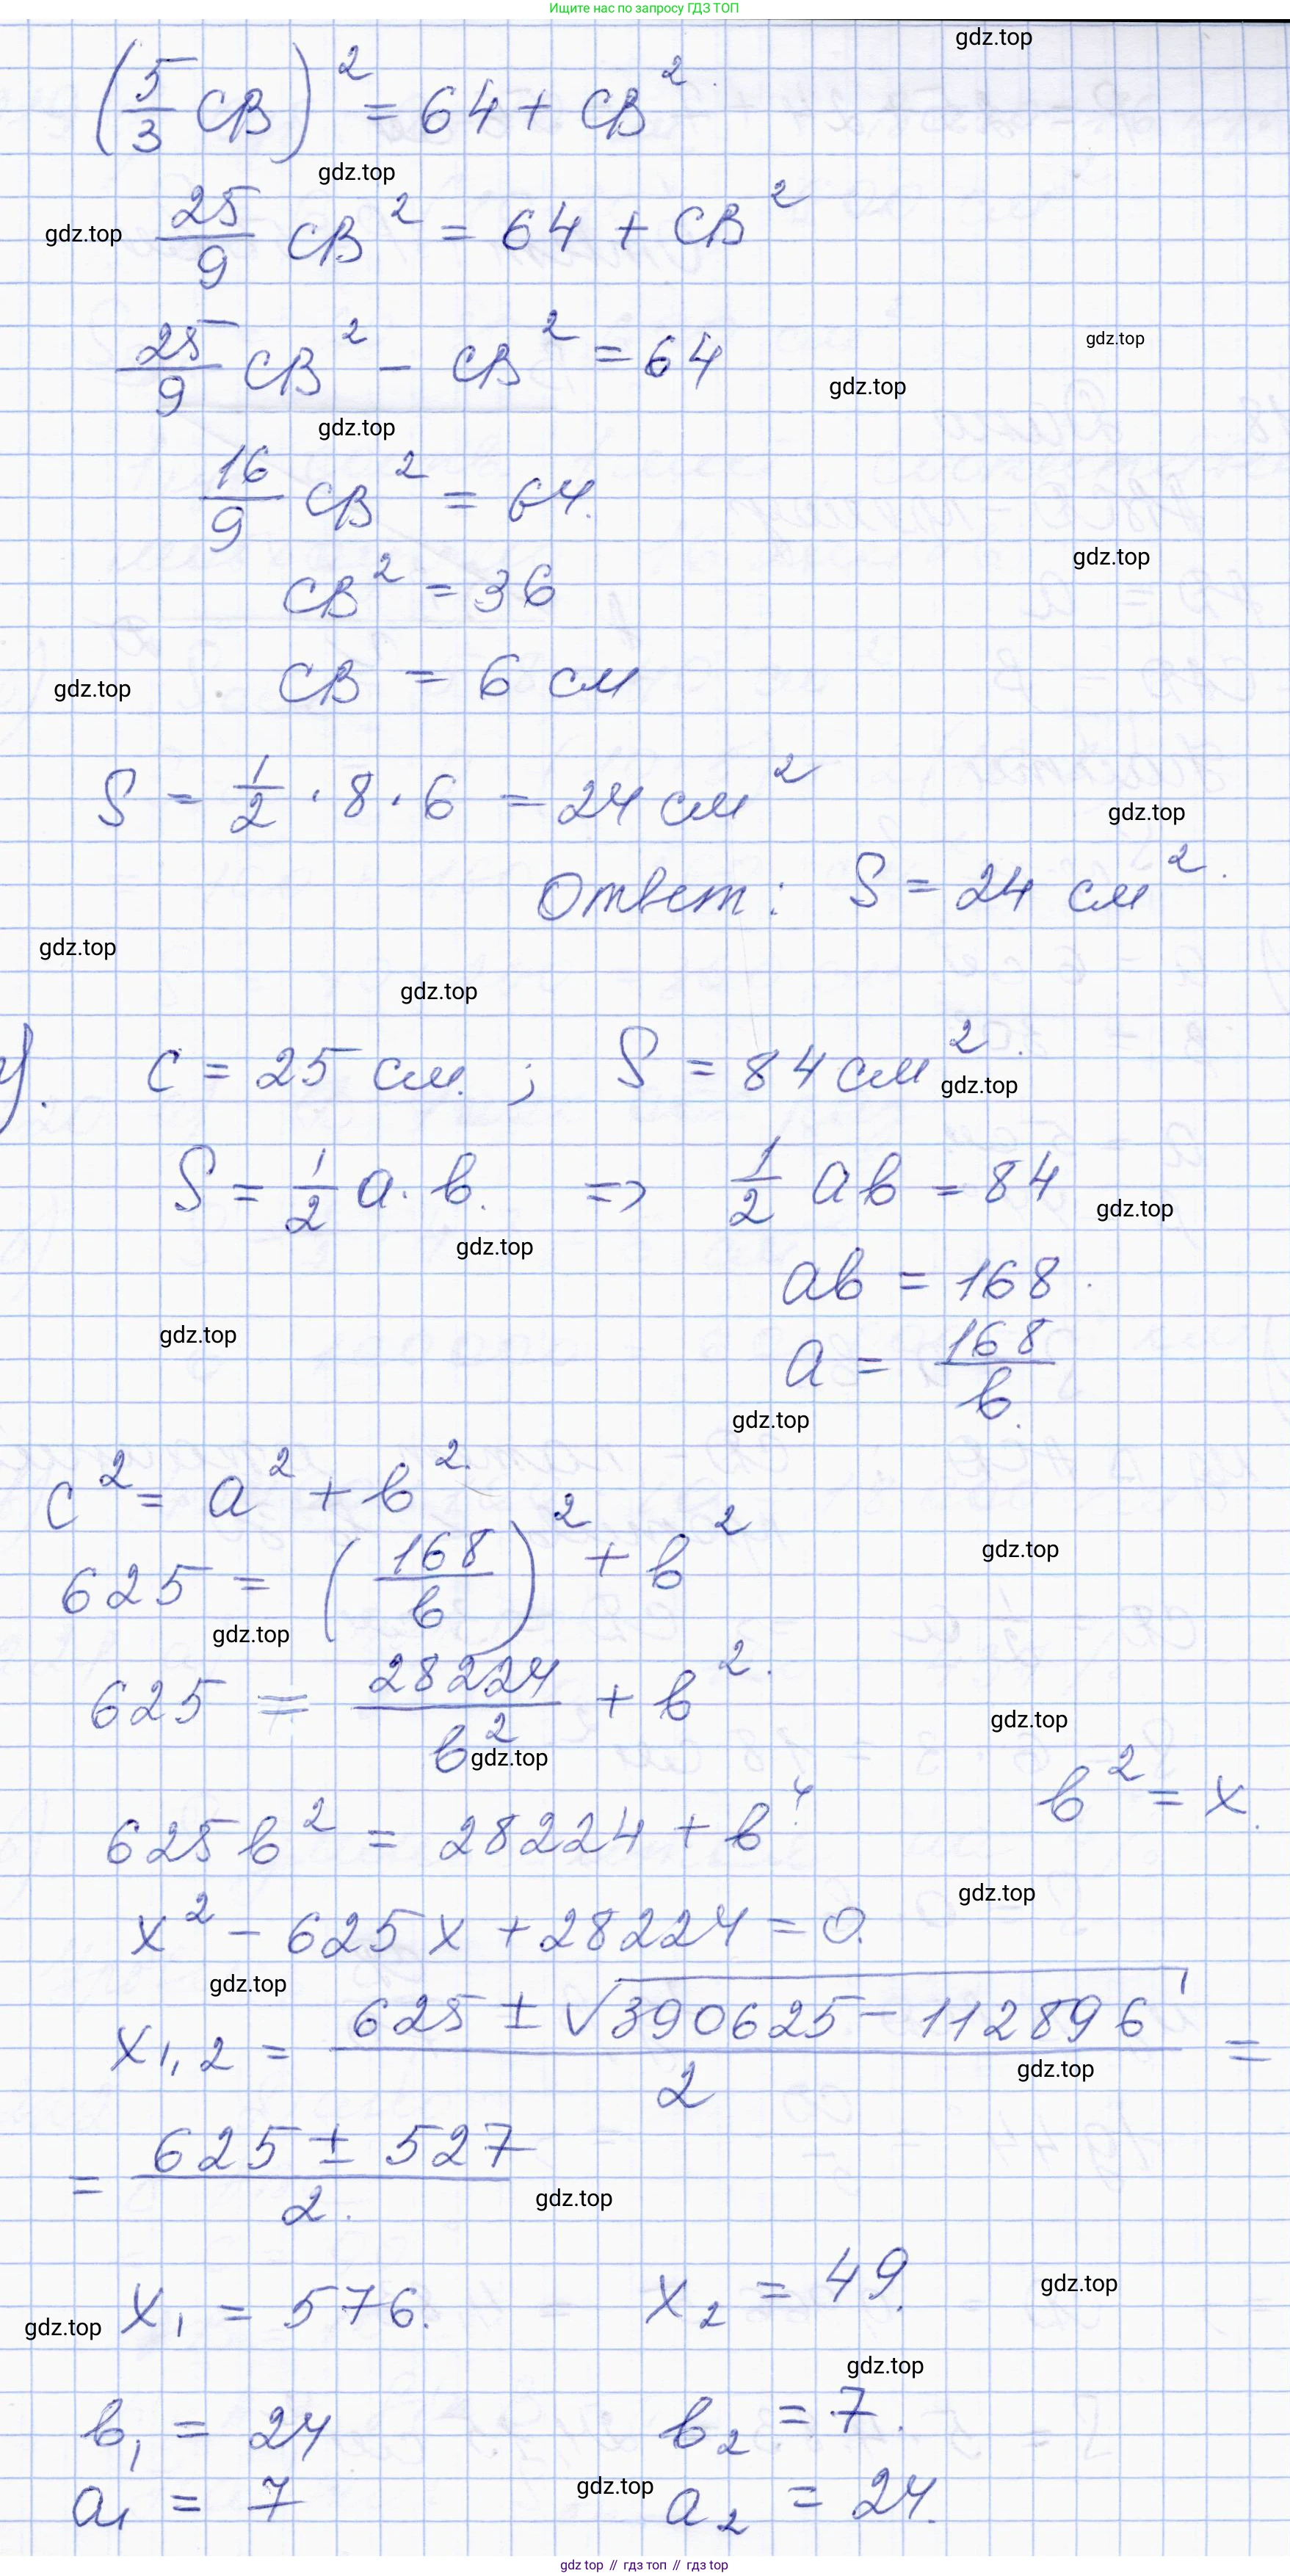 Ищите нас по запросу ГДЗ ТОП
gdz.top
(5/3 CB)² = 64 + CB²
gdz.top
gdz.top
25/9 CB² = 64 + CB²
gdz.top
25/9 CB² - CB² = 64
gdz.top
gdz.top
16/9 CB² = 64.
gdz.top
CB² = 36
CB = 6 см
gdz.top
S = 1/2 · 8 · 6 = 24 см²
gdz.top
Ответ: S = 24 см².
gdz.top
gdz.top
c = 25 см. ; S = 84 см².
gdz.top
S = 1/2 a · b. => 1/2 ab = 84
gdz.top
gdz.top
ab = 168.
gdz.top
a = 168/b.
gdz.top
c² = a² + b².
625 = (168/b)² + b²
gdz.top
gdz.top
625 = 28224/b² + b².
gdz.top
gdz.top
b² = x.
625b² = 28224 + b⁴
gdz.top
x² - 625x + 28224 = 0.
gdz.top
x1,2 = (625 ± √390625 - 112896)/2 =
gdz.top
= (625 ± 527)/2.
gdz.top
x₁ = 576. x₂ = 49.
gdz.top
gdz.top
gdz.top
b₁ = 24 b₂ = 7.
gdz.top
a₁ = 7 a₂ = 24.
gdz top // гдз топ // гдз top